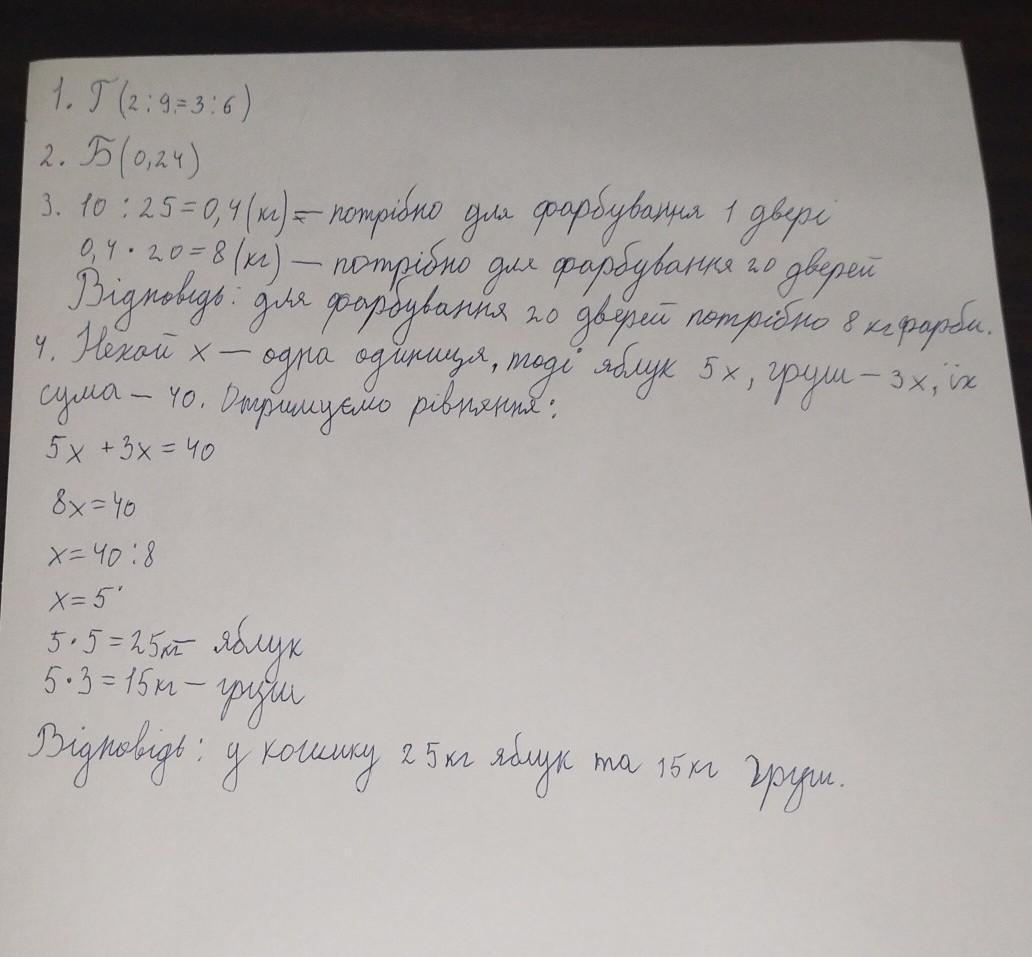 1. Г (2:9=3:6)
2. Б (0,24)
3. 10 : 25 = 0,4 (кг) = — потрібно для фарбування 1 двері
0,4 · 20 = 8 (кг) — потрібно для фарбування 20 дверей
Відповідь: для фарбування 20 дверей потрібно 8 кг фарби.
4. Нехай x — одна одиниця, тоді яблук 5x, груш — 3x, їх
сума — 40. Отримуємо рівняння:
5x + 3x = 40
8x = 40
x = 40 : 8
x = 5
5 · 5 = 25 кг — яблук
5 · 3 = 15 кг — груш
Відповідь: у кошику 25 кг яблук та 15 кг груш.